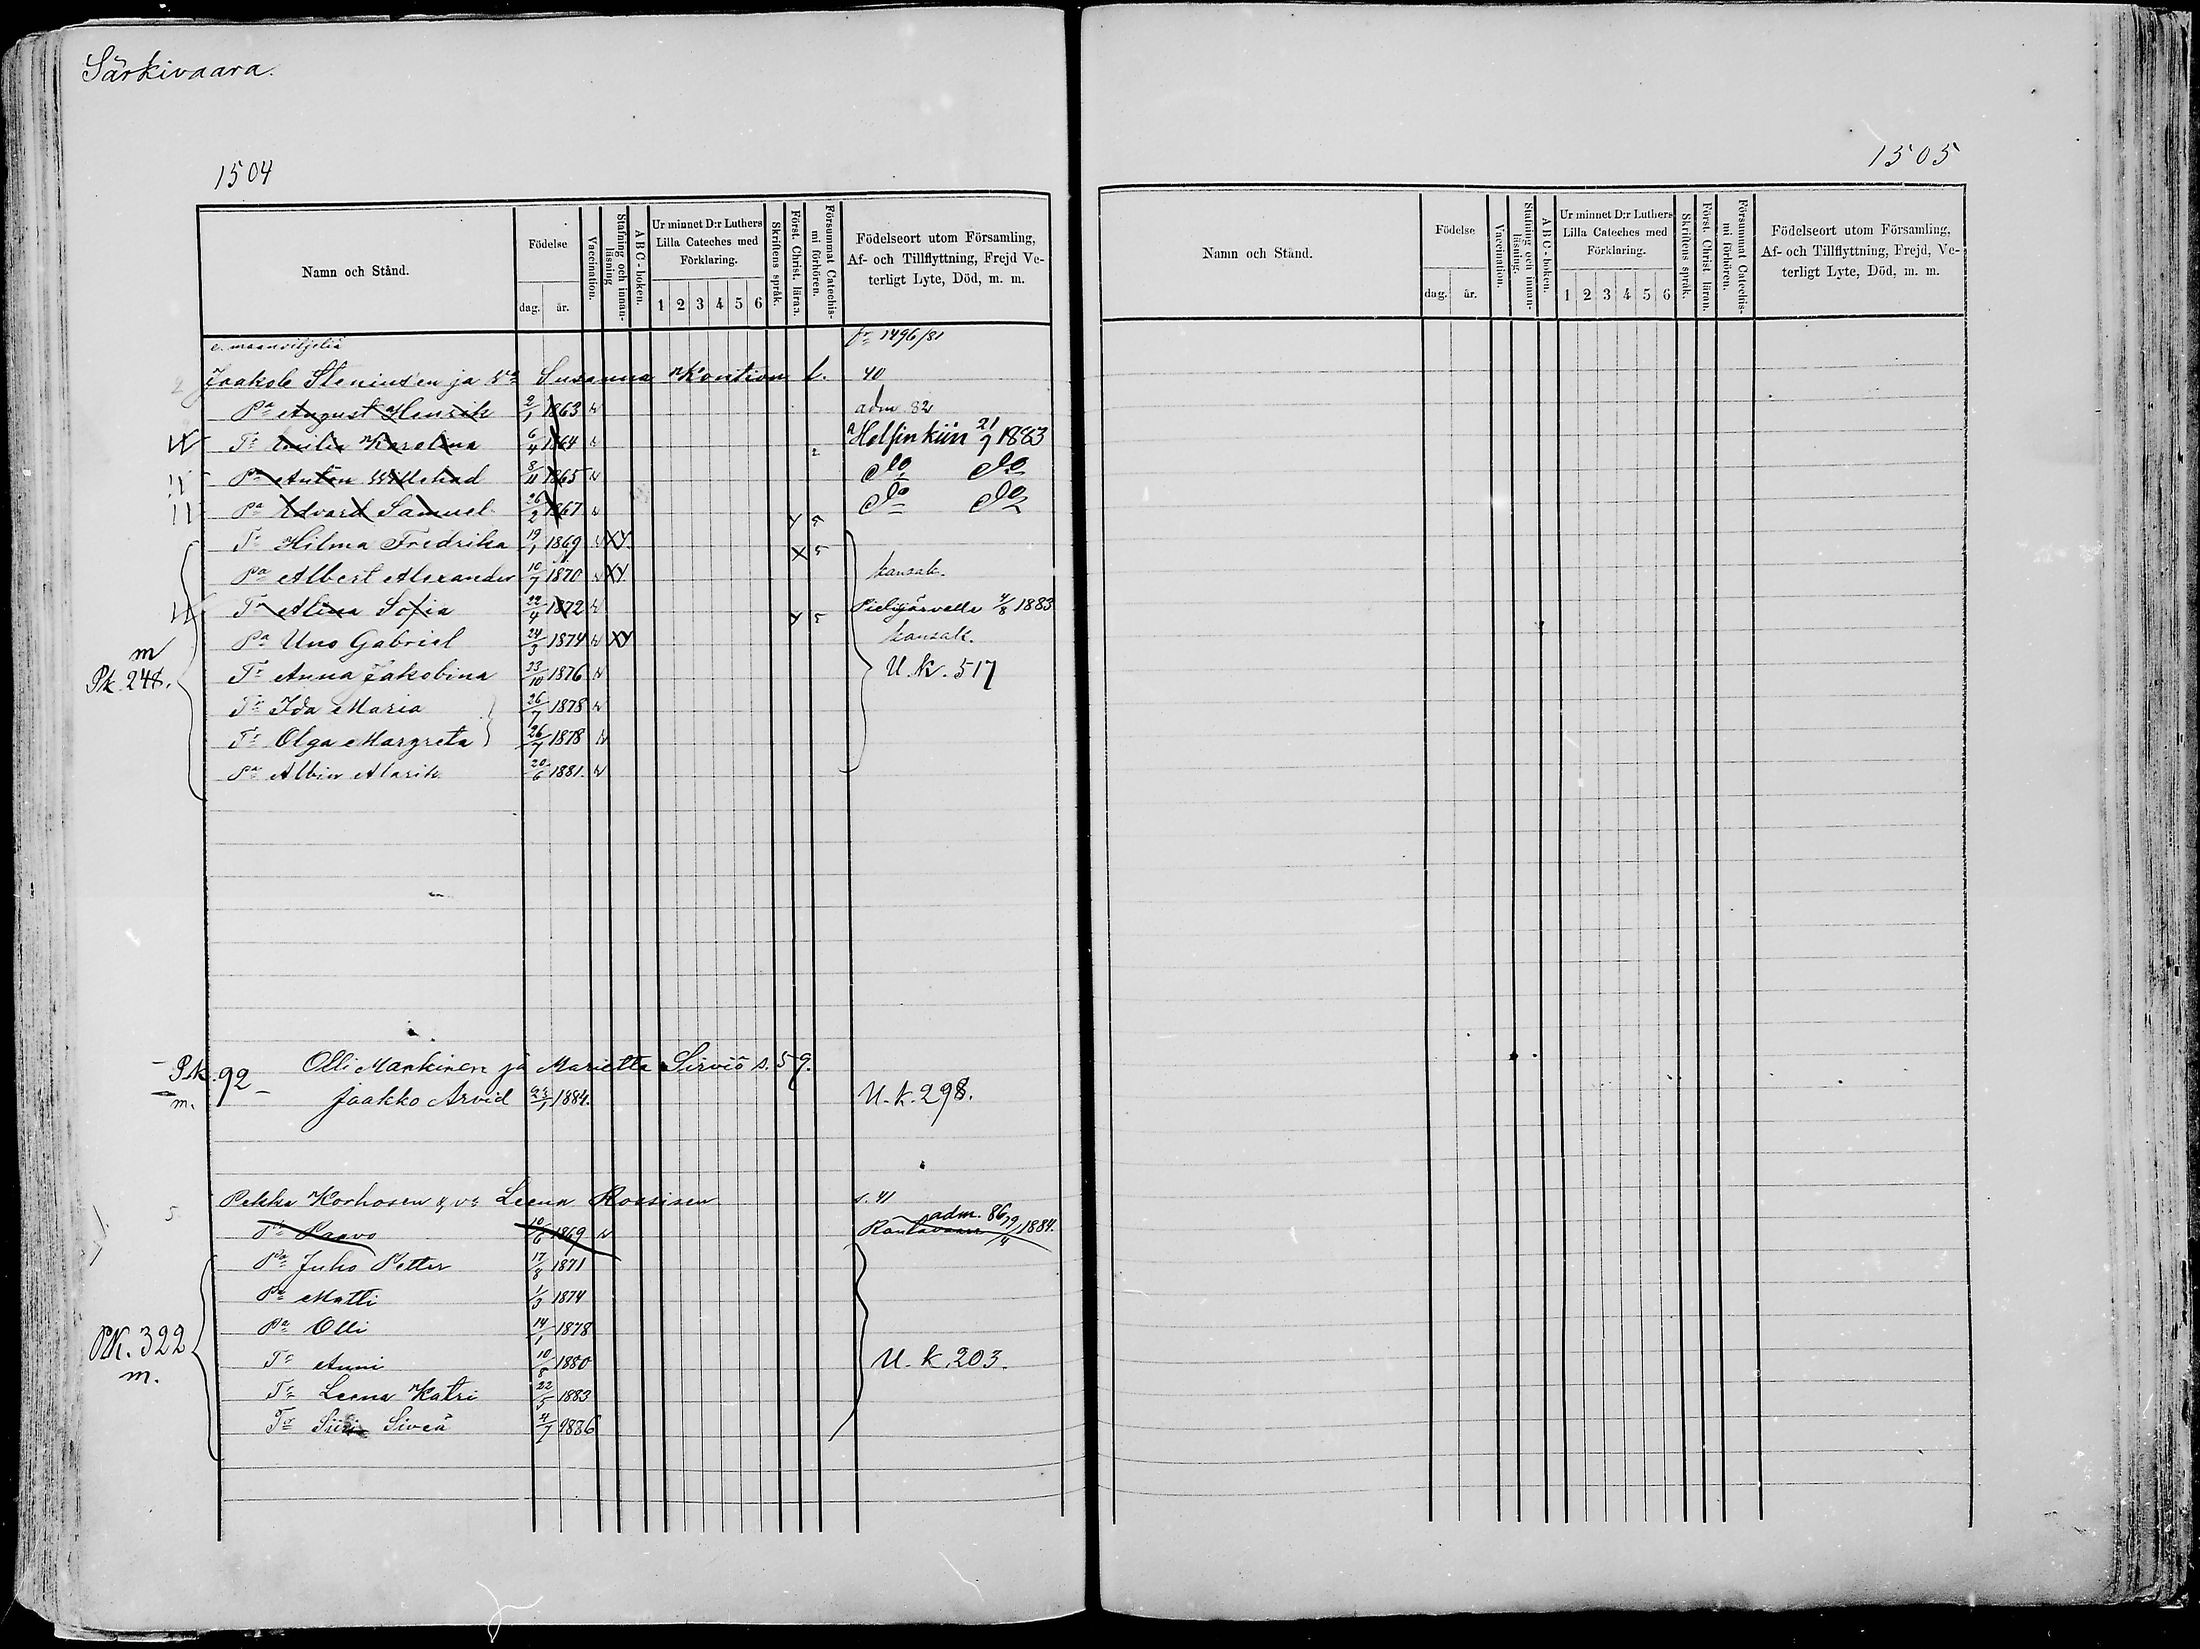 Särkivaara.
1504
1505
Namn och Stånd.
Födelse
dag. år.
Vaccination.
Stafning och innan-läsning
ABC-boken.
Ur minnet D:r Luthers Lilla Cateches med Förklaring.
1 2 3 4 5 6
Skriftens språk.
Först. Christ. läran.
Försummat Catechis-mi förhören.
Födelseort utom Församling, Af- och Tillflyttning, Frejd Ve-terligt Lyte, Död, m. m.
e. maanviljeliä 1496/81
Jaakob Steninsen ja Susanna Kontion l. 40
Pa August Henrik 2/1 1863 adm. 82
Tr Emilia Karolina 6/4 1864 Helsinkiin 21/7 1883
Pa Anton Willehad 8/11 1865 do do
Pa Edvard Samuel 26/2 1867 do do
Tr Hilma Fredrika 19/1 1869 XY
Pa Albert Alexander 10/7 1870 XY kansak.
Tr Alina Sofia 22/4 1872 Pielisjärvelle 4/8 1883
Pa Uno Gabriel 24/3 1874 XY kansak.
m
Pk 248.
Tr Anna Jakobina 23/10 1876 U. k. 517
Tr Ida Maria 26/7 1878
Tr Olga Margreta 26/7 1878
Pa Albin Alarik 20/6 1881.
Pk. 92 Olli Mankinen ja Marietta Sirviö s. 59.
m. Jaakko Arvid 1884. U. k. 298.
Pekka Korhosen Leena Rossisen s. 41
Pa Paavo 10/6 1869 adm. 86 Rantavaara 19/4 1884.
Pa Juho Petter 17/8 1871
Pa Matti 1/3 1874
Pa Olli 14/1 1878
PK. 322
m.
Tr Anni 10/8 1880 U. k. 203.
Tr Leena Katri 22/5 1883
Tr Siveä 4/7 1886
Namn och Stånd.
Födelse
dag. år.
Vaccination.
Stafning och innan-läsning.
ABC-boken.
Ur minnet D:r Luthers Lilla Cateches med Förklaring.
1 2 3 4 5 6
Skriftens språk.
Först. Christ läran.
Försummat Catechis-mi förhören.
Födelseort utom Församling, Af- och Tillflyttning, Frejd, Ve-terligt Lyte, Död, m. m.